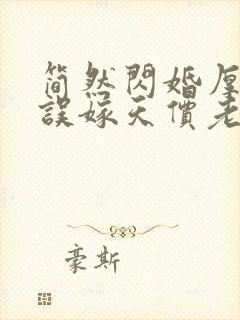 簡然閃婚厚
誤嫁天價老
豪斯